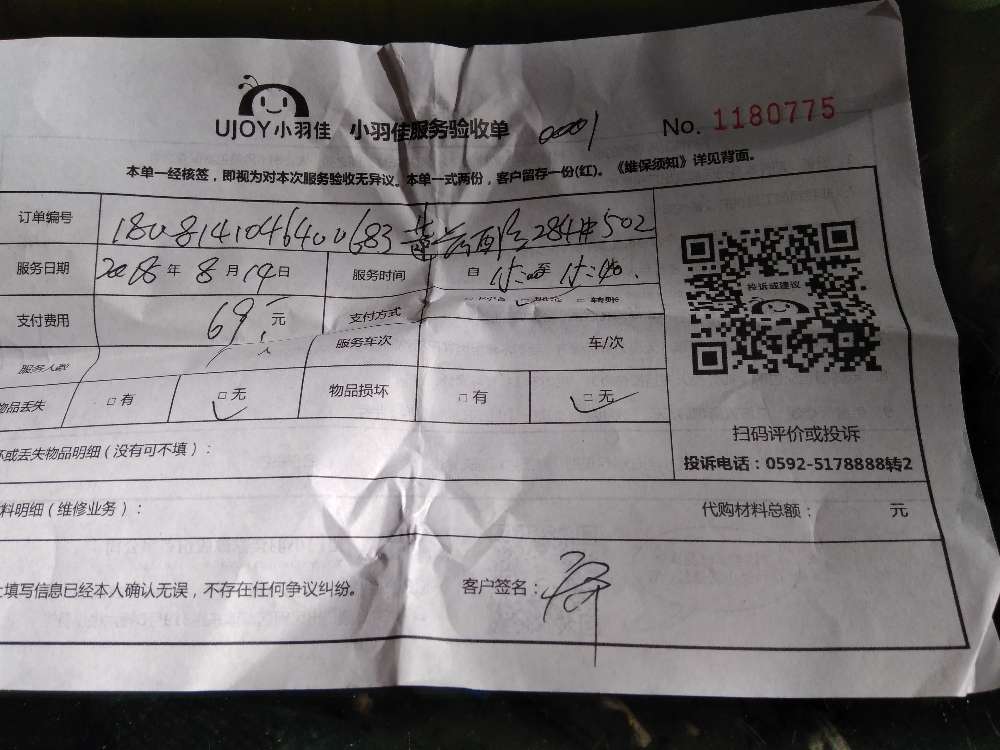 UJOY小羽佳 小羽佳服务验收单 0001 No. 1180775
本单一经核签，即视为对本次服务验收无异议。本单一式两份，客户留存一份(红)。《维保须知》详见背面。
订单编号 180814104640683 莲 284#502
服务日期 2018年8月14日 服务时间 自 15:00 至 15:40.
支付费用 69. 元 支付方式
服务人数 人 服务车次 车/次
物品丢失 □有 □无 物品损坏 □有 □无
坏或丢失物品明细（没有可不填）：
料明细（维修业务）： 代购材料总额： 元
上填写信息已经本人确认无误，不存在任何争议纠纷。 客户签名：
投诉或建议
扫码评价或投诉
投诉电话：0592-5178888转2